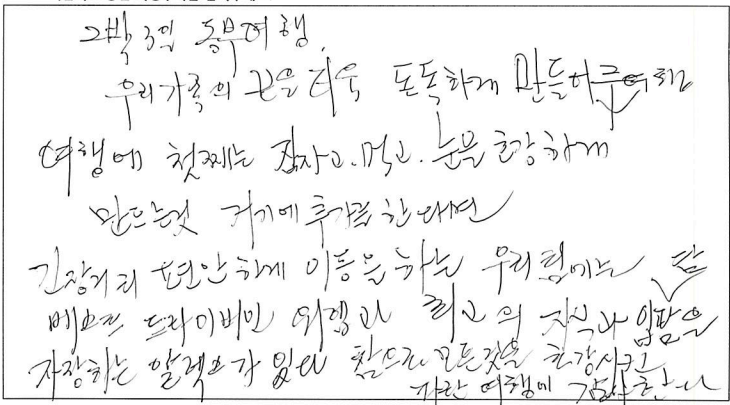 2박 3일 동부여행.
우리가족의 끈을 더욱 돈독하게 만들어준여행
여행에 첫째는 잠자고. 먹고. 눈을 호강하게
만드는것 거기에 추가를 한다면
긴장거리 편안하게 이동을 하는 우리팀에는
베스트 드라이버인 와 최고의 지식과 입담을
자랑하는 알렉스가 있다 참으로 모든것을 호강시킨
자란 여행에 감사한다